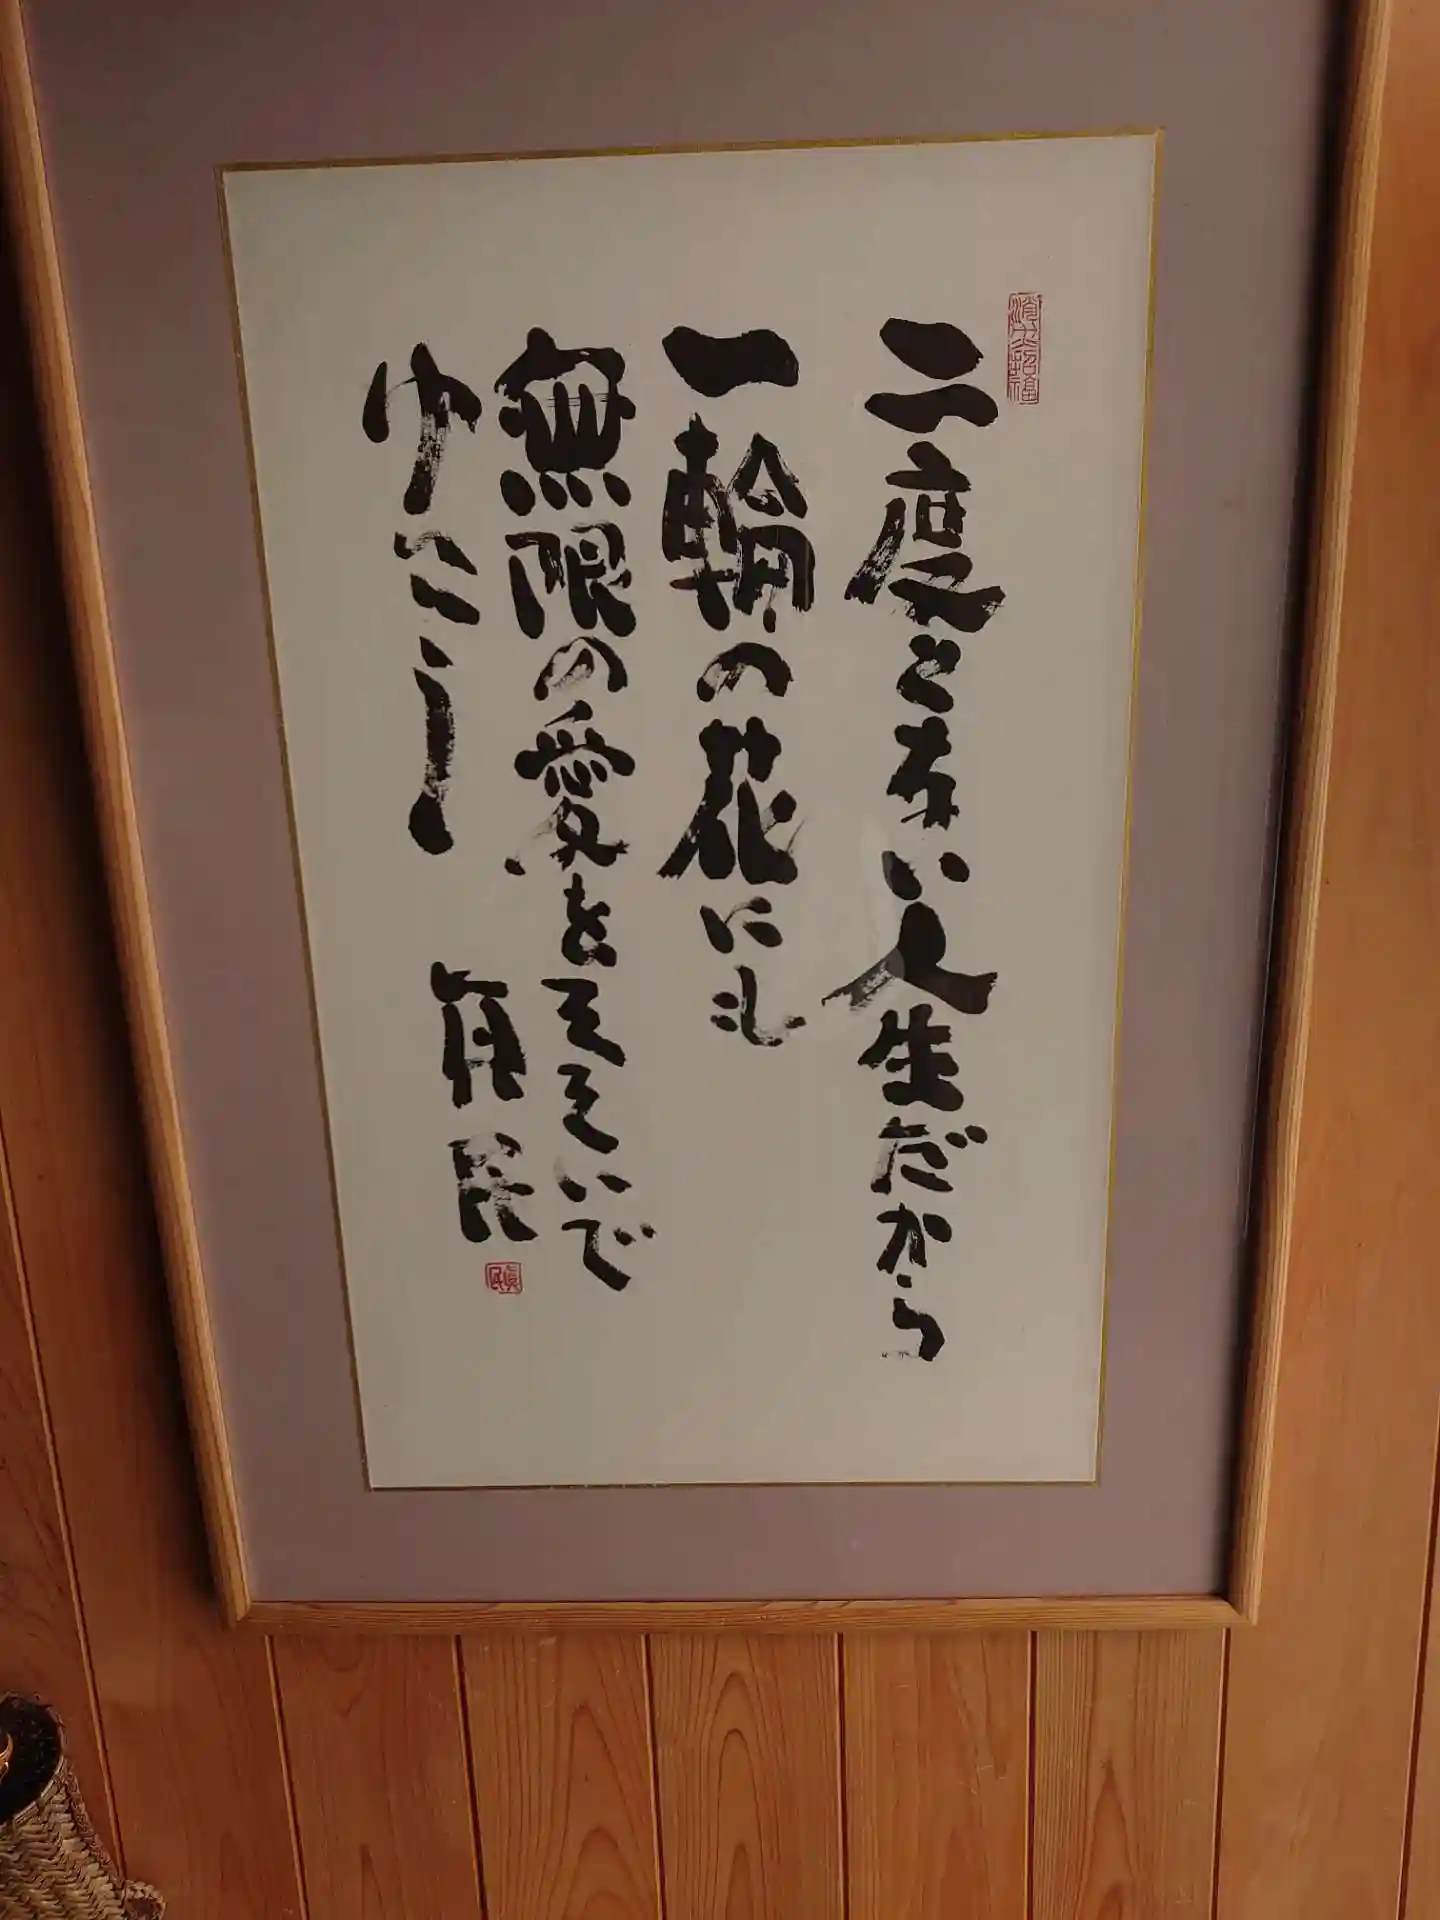 二度とない人生だから
一輪の花にも
無限の愛をそそいで
ゆこう
真民
真民